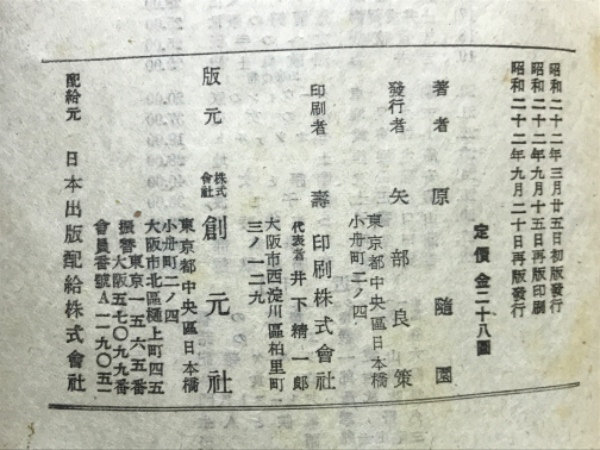 昭和二十二年三月廿五日初版發行
昭和二十二年九月十五日再版印刷
昭和二十二年九月二十日再版發行
定價 金二十八圓
著者 原隨園
發行者 矢部良策
東京都中央區日本橋
小舟町二ノ四
印刷者 壽印刷株式會社
代表者 井下精一郎
大阪市西淀川區柏里町
三ノ一二九
版元 株式會社 創元社
東京都中央區日本橋
小舟町二ノ四
大阪市北區樋上町四五
振替 東京一五六五番
大阪五七〇九九番
會員番號A一一九〇五一
配給元 日本出版配給株式會社